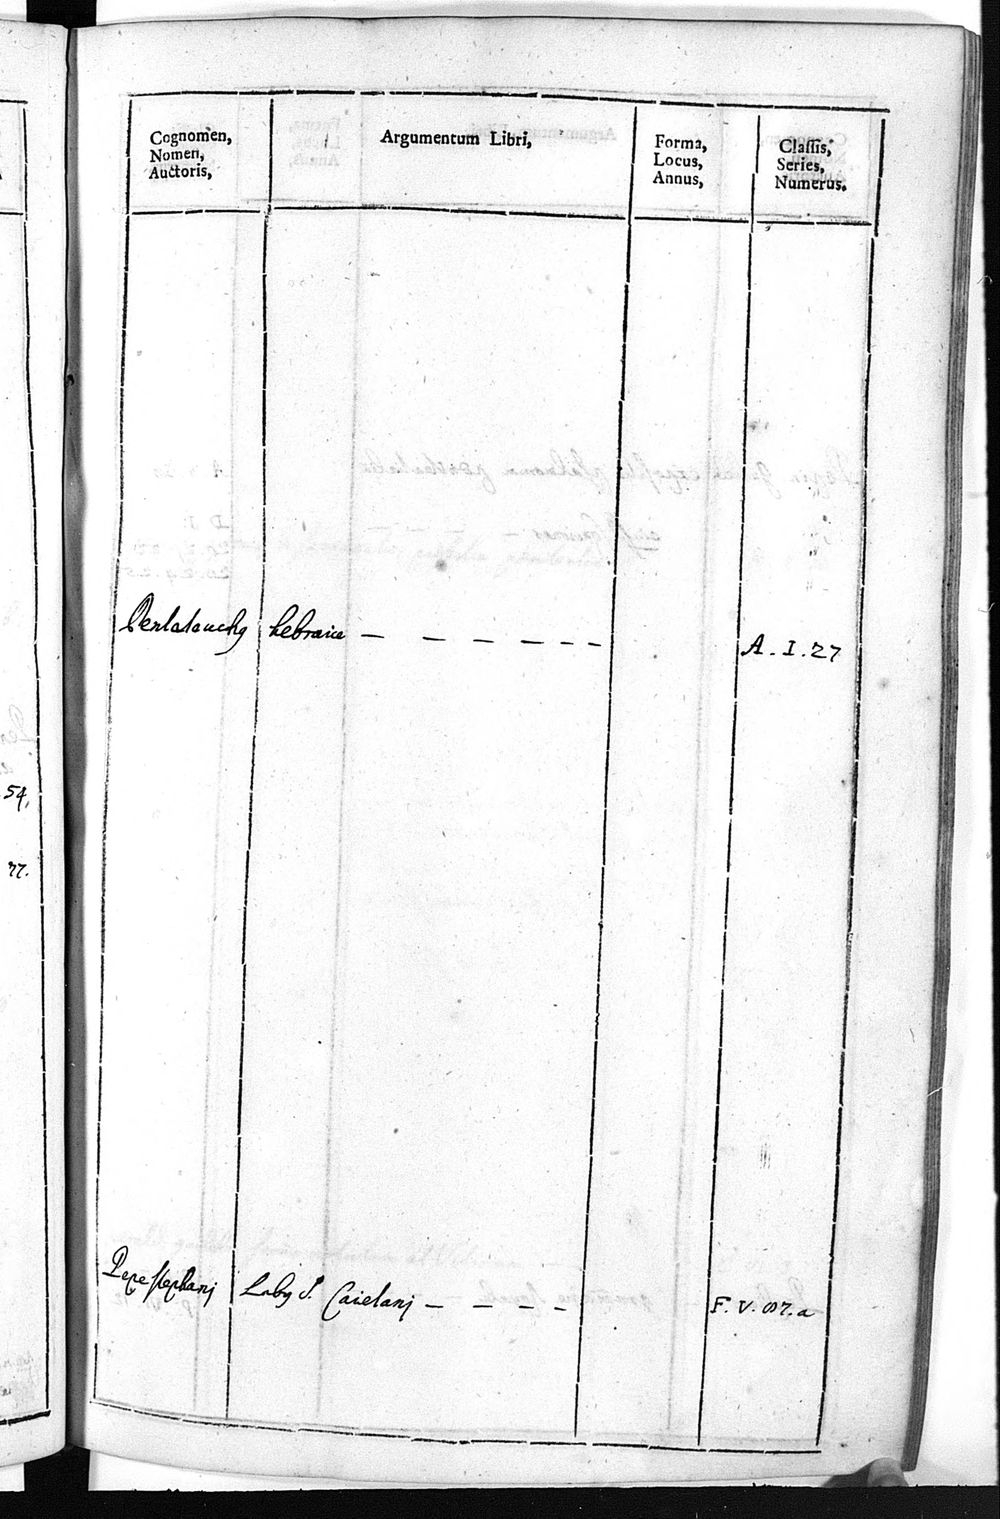 Cognomen,
Nomen,
Auctoris,
Argumentum Libri,
Forma,
Locus,
Annus,
Classis,
Series,
Numerus.
54,
77.
hebraice — — — — — —
A. I. 27
Pepe stephani
S. Caietani — — — —
F. V.